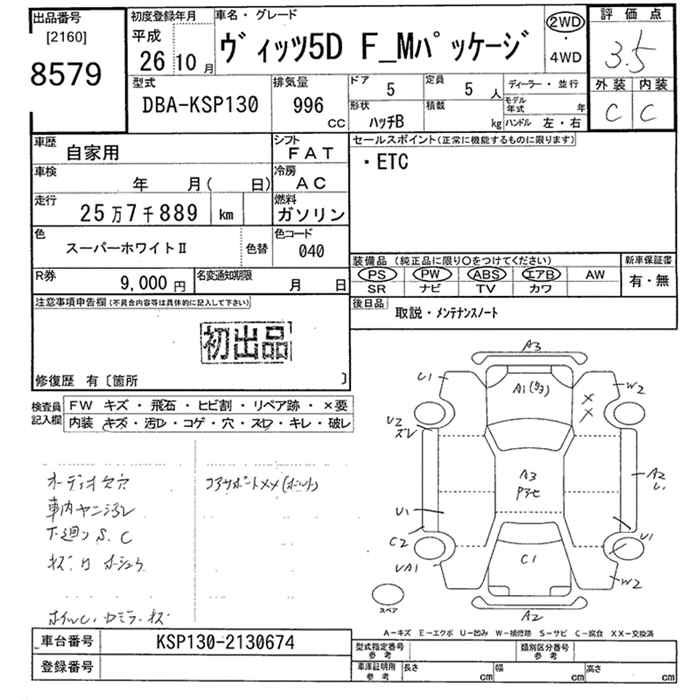 出品番号
[2160]
8579
初度登録年月
平成
26年10月
車名・グレード
ヴィッツ5D F_Mパッケージ
2WD
・
4WD
評価点
3.5
外装 内装
C C
型式
DBA-KSP130
排気量
996
CC
ドア
5
定員
5人
形状
ハッチB
積載
kg
ディーラー・並行
モデル年式 年
ハンドル 左・右
車歴
自家用
シフト
FAT
車検
年 月( 日)
冷房
AC
走行
25万7千889 km
燃料
ガソリン
色
スーパーホワイトⅡ
色替
色コード
040
R券
9,000円
名変通知期限
月 日
セールスポイント(正常に機能するものに限ります)
・ETC
装備品(純正品に限り○をつけてください)
PS PW ABS エアB AW
SR ナビ TV カワ
新車保証書
有・無
後日品
取説・メンテナンスノート
注意事項申告欄(不具合内容等は具体的に記入して下さい)
初出品
修復歴 有〔箇所 〕
検査員記入欄
FW キズ・飛石・ヒビ割・リペア跡・×要
内装 キズ・汚レ・コゲ・穴・スレ・キレ・破レ
車内ヤニ汚レ
下廻り S.C
A3
U1
A1
W2
U2
A3
A2
U1
C2
U1
C1
W2
A2
スペア
A-キズ E-エクボ U-凹み W-補修跡 S-サビ C-腐食 XX-交換済
車台番号
KSP130-2130674
登録番号
型式指定番号
参考
類別区分番号
参考
車庫証明用
参考
長さ cm
幅 cm
高さ cm